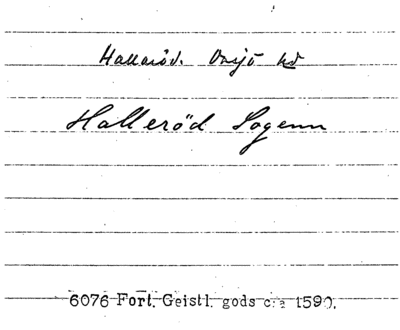 Hallaröd. Onsjö hd
Halleröd Sogenn
6076 Fort. Geistl. gods c:a 1590.